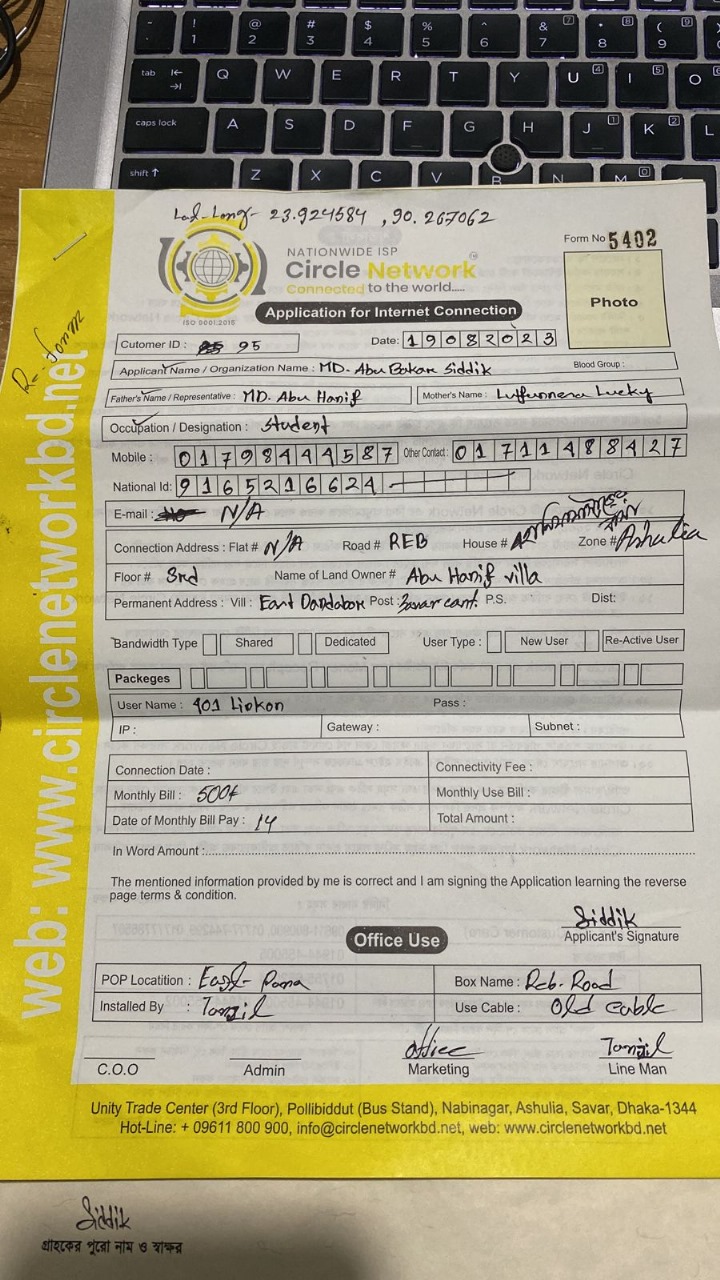 Lat-Long- 23.924584 , 90.267062
Form No 5402
NATIONWIDE ISP
Circle Network
Connected to the world.....
ISO 9001:2015
Photo
Application for Internet Connection
Cutomer ID : 95
Date: 19082023
Applicant Name / Organization Name : MD. Abu Bakar Siddik
Blood Group :
Father's Name / Representative : MD. Abu Hanif
Mother's Name : Lutfunnera Lucky
Occupation / Designation : Student
Mobile : 01798444587 Other Contact: 01711488427
National Id: 9165216624
E-mail : N/A
Connection Address : Flat # N/A Road # REB House # Zone # Ashulia
Floor # 3rd Name of Land Owner # Abu Hanif villa
Permanent Address : Vill : East Dandabor Post : Savar cant. P.S. Dist:
Bandwidth Type Shared Dedicated User Type : New User Re-Active User
Packeges
User Name : 401 Liokon Pass :
IP : Gateway : Subnet :
Connection Date : Connectivity Fee :
Monthly Bill : 500৳ Monthly Use Bill :
Date of Monthly Bill Pay : 14 Total Amount :
In Word Amount :
The mentioned information provided by me is correct and I am signing the Application learning the reverse
page terms & condition.
Siddik
Applicant's Signature
Office Use
POP Locatition : East- Para Box Name : Reb. Road
Installed By : Tanzil Use Cable : Old cable
office Tanzil
C.O.O Admin Marketing Line Man
Unity Trade Center (3rd Floor), Pollibiddut (Bus Stand), Nabinagar, Ashulia, Savar, Dhaka-1344
Hot-Line: + 09611 800 900, info@circlenetworkbd.net, web: www.circlenetworkbd.net
web: www.circlenetworkbd.net
Siddik
গ্রাহকের পুরো নাম ও স্বাক্ষর